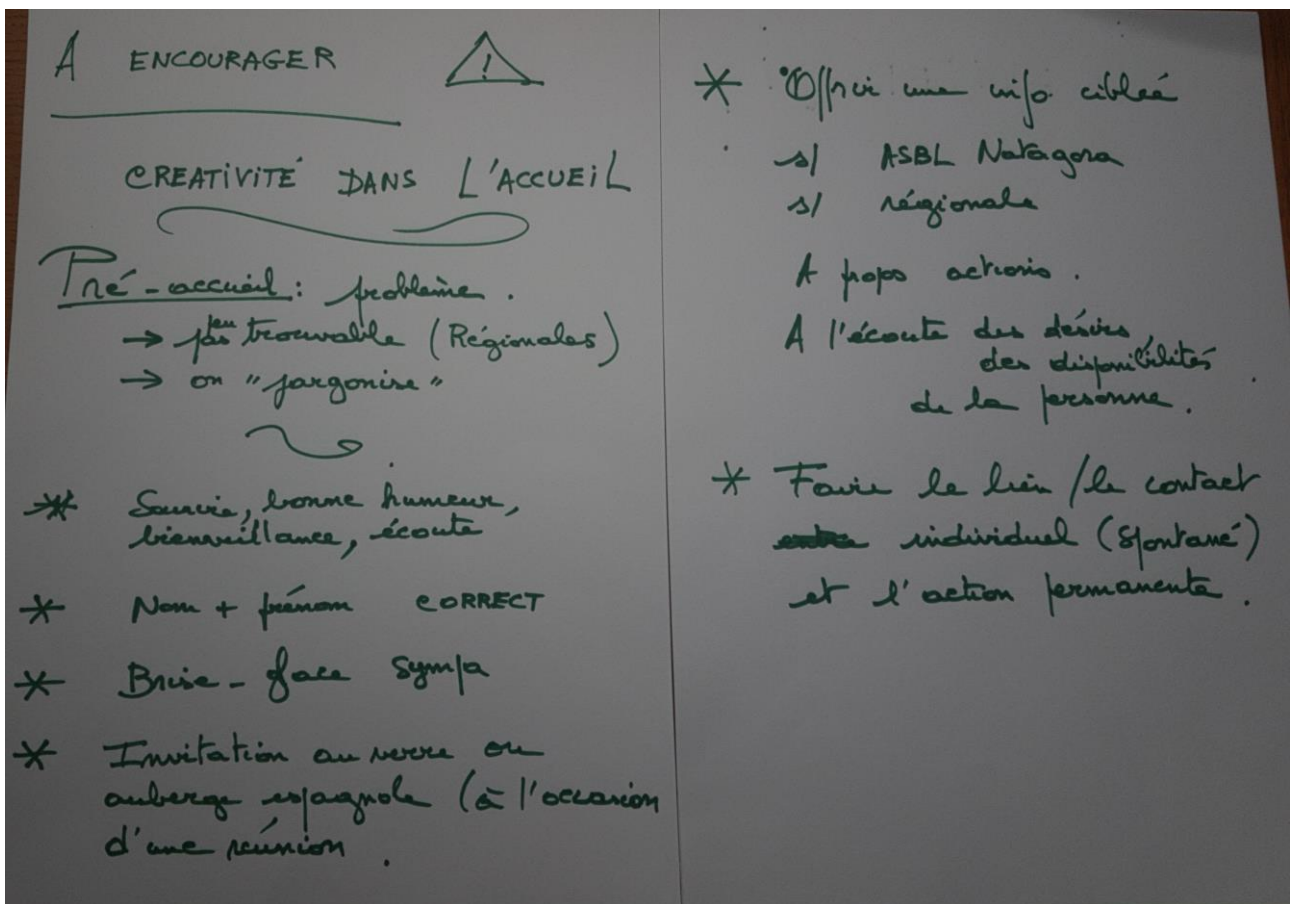 A ENCOURAGER
CREATIVITÉ DANS L'ACCUEIL
Pré-accueil : problème.
→ peu trouvable (Régionales)
→ on "jargonise"
* Sourire, bonne humeur,
bienveillance, écoute
* Nom + prénom CORRECT
* Brise-glace sympa
* Invitation au verre ou
auberge espagnole (à l'occasion
d'une réunion.
* Offrir une info. ciblée
s/ ASBL Natagora
s/ régionale
A propos actions.
A l'écoute des désirs,
des disponibilités
de la personne.
* Faire le lien / le contact
individuel (spontané)
et l'action permanente.